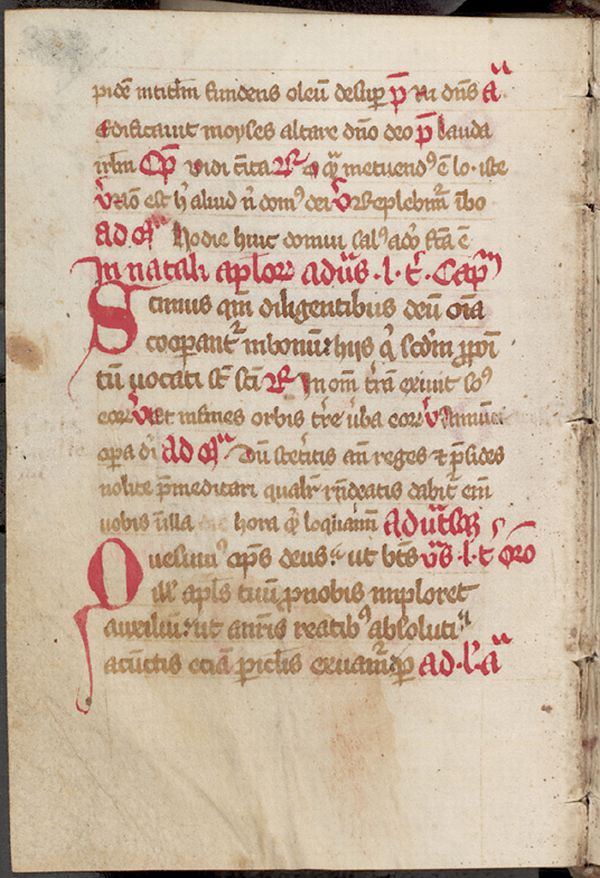 pidē intitlm fundens oleū desup p̄ Ni dn̄s Aᵃ
Edificauit moyses altare dn̄o deo p̄ lauda
irlm Cp̄ vidi ciīta R O qͣ metuendꝰ ē lo iste
V̄ Nō est hͨ aliud n̄ domꝰ dei V̄ Reple
ad mᵃ Hodie huic domui salꝰ a dō fc̄a ē
In natali aplor aduͣs l t̄ Capᵐ
Scimus qm̄ diligentibus deū oīa
cooperantʳ inbonū hijs qͥ scdm p̄poī
tū uocati sc̄ sc̄i R In om̄ tr̄a exiuit soꝰ
eor V̄ Et infines orbis tr̄e ūba eor V̄ Annūci
opa dī ad mᵃ Dū stetitis an̄ reges ⁊ p̄sides
nolite p̄meditari qualʳ rn̄deatis dabit̄ em̄
uobis ī illa hora qͥ loquamī
Quesumꝰ ops deus ut bt̄s vͣs l t oro
ill apl̄s tuū pnobis imploret
auxiliū ut an̄ris reatibꝰ absoluti
acūctis eciā piclis exuamʳ p ad l Aᵃ